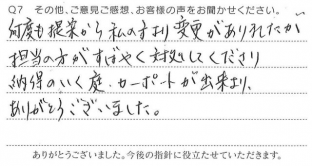 Q7 その他、ご意見ご感想、お客様の声をお聞かせください。
何度も提案から私の方より変更がありましたが
担当の方がすばやく対処してくださり
納得のいく庭、カーポートが出来ました。
ありがとうございました。
ありがとうございました。今後の指針に役立たせていただきます。